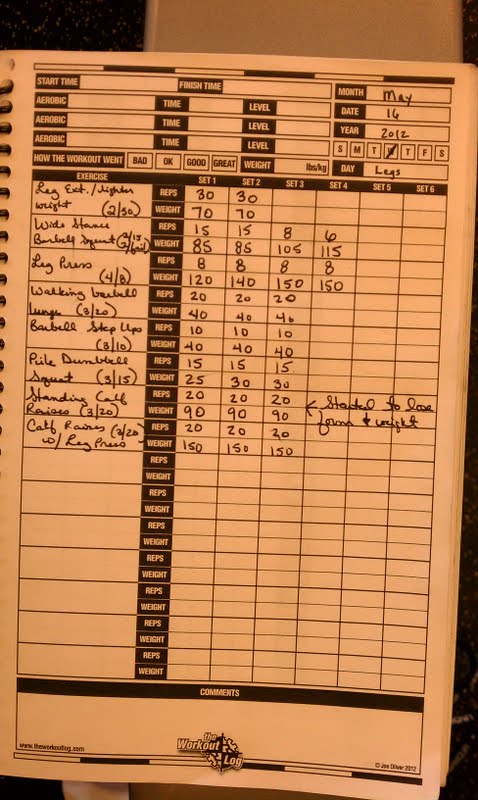 START TIME FINISH TIME MONTH May
AEROBIC TIME LEVEL DATE 16
AEROBIC TIME LEVEL YEAR 2012
AEROBIC TIME LEVEL S M T W T F S
HOW THE WORKOUT WENT BAD OK GOOD GREAT WEIGHT lbs/kg DAY Legs
EXERCISE SET 1 SET 2 SET 3 SET 4 SET 5 SET 6
Leg Ext./lighter REPS 30 30
weight (2/30) WEIGHT 70 70
Wide Stance REPS 15 15 8 6
Barbell Squat (2/15 WEIGHT 85 85 105 115
Leg Press REPS 8 8 8 8
(4/8) WEIGHT 120 140 150 150
Walking barbell REPS 20 20 20
Lunges (3/20) WEIGHT 40 40 40
Barbell Step Ups REPS 10 10 10
(3/10) WEIGHT 40 40 40
Plié Dumbbell REPS 15 15 15
Squat (3/15) WEIGHT 25 30 30
Standing Calf REPS 20 20 20 ← Started to lose
Raises (3/20) WEIGHT 90 90 90 form & weight
Calf Raises (3/20) REPS 20 20 20
w/ Leg Press WEIGHT 150 150 150
REPS
WEIGHT
REPS
WEIGHT
REPS
WEIGHT
REPS
WEIGHT
REPS
WEIGHT
REPS
WEIGHT
REPS
WEIGHT
COMMENTS
www.theworkoutlog.com the Workout Log © Joe Oliver 2012